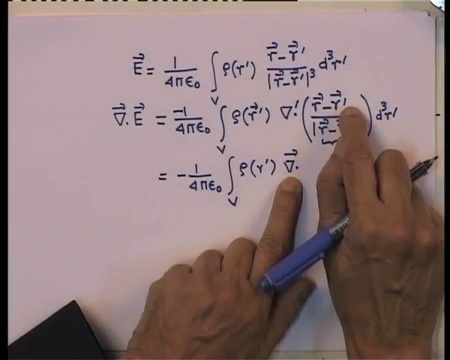 E⃗ = 1/4πε₀ ∫_V ρ(r') (r⃗ - r⃗')/|r⃗ - r⃗'|³ d³r'
∇⃗·E⃗ = -1/4πε₀ ∫_V ρ(r⃗') ∇'·((r⃗ - r⃗')/|r⃗ - ) d³r'
= - 1/4πε₀ ∫_V ρ(r') ∇⃗·